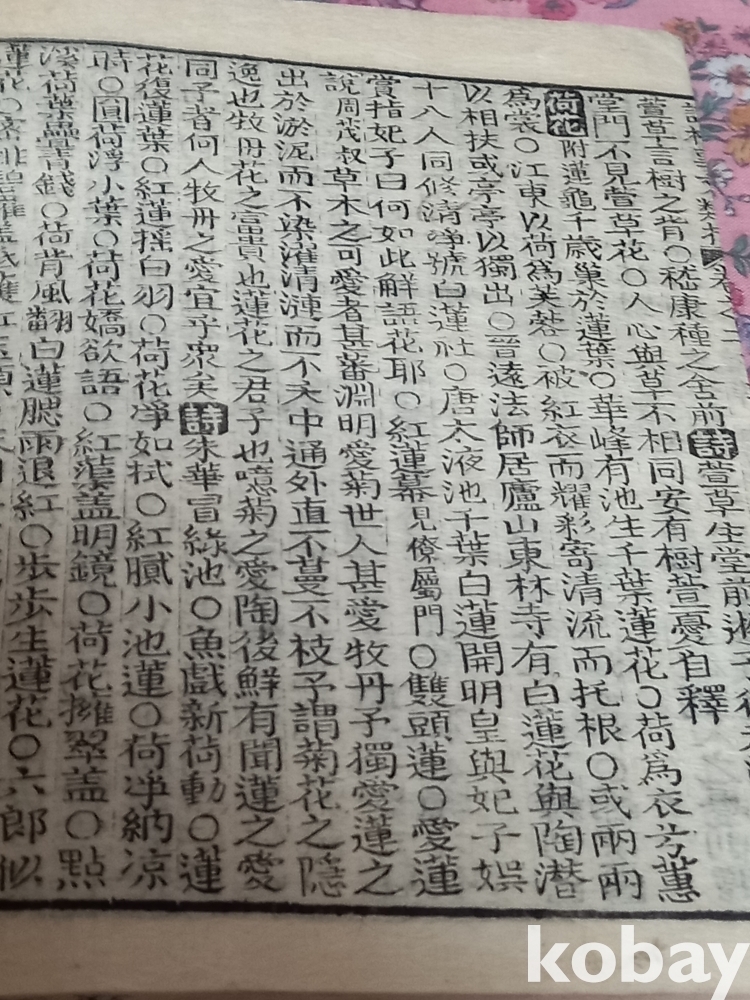 萱草言樹之背○嵇康種之舍前詩萱草生堂前
堂門不見萱草花○人心與草不相同安有樹萱憂自釋
荷花附蓮龜千歲巢於蓮葉○華峰有池生千葉蓮花○荷爲衣兮蕙
爲裳○江東以荷爲芙蓉○被紅衣而耀彩寄清流而托根○或兩兩
以相扶或亭亭以獨出○晉遠法師居廬山東林寺有白蓮花與陶潛
十八人同修清淨號白蓮社○唐太液池千葉白蓮開明皇與妃子娛
賞指妃子曰何如此解語花耶○紅蓮幕見僚屬門○雙頭蓮○愛蓮
說周茂叔草木之可愛者甚蕃淵明愛菊世人甚愛牧丹予獨愛蓮之
出於淤泥而不染濯清漣而不夭中通外直不蔓不枝予謂菊花之隱
逸也牧丹花之富貴也蓮花之君子也噫菊之愛陶後鮮有聞蓮之愛
同予者何人牧丹之愛宜乎衆矣詩朱華冒綠池○魚戲新荷動○蓮
花復蓮葉○紅蓮摇白羽○荷花淨如拭○紅膩小池蓮○荷淨納凉
時○圓荷浮小葉○荷花嬌欲語○紅蕖盖明鏡○荷花擁翠盖○點
溪荷葉疊青錢○荷背風翻白蓮腮雨退紅○步步生蓮花○六郎似
蓮花○
kobay